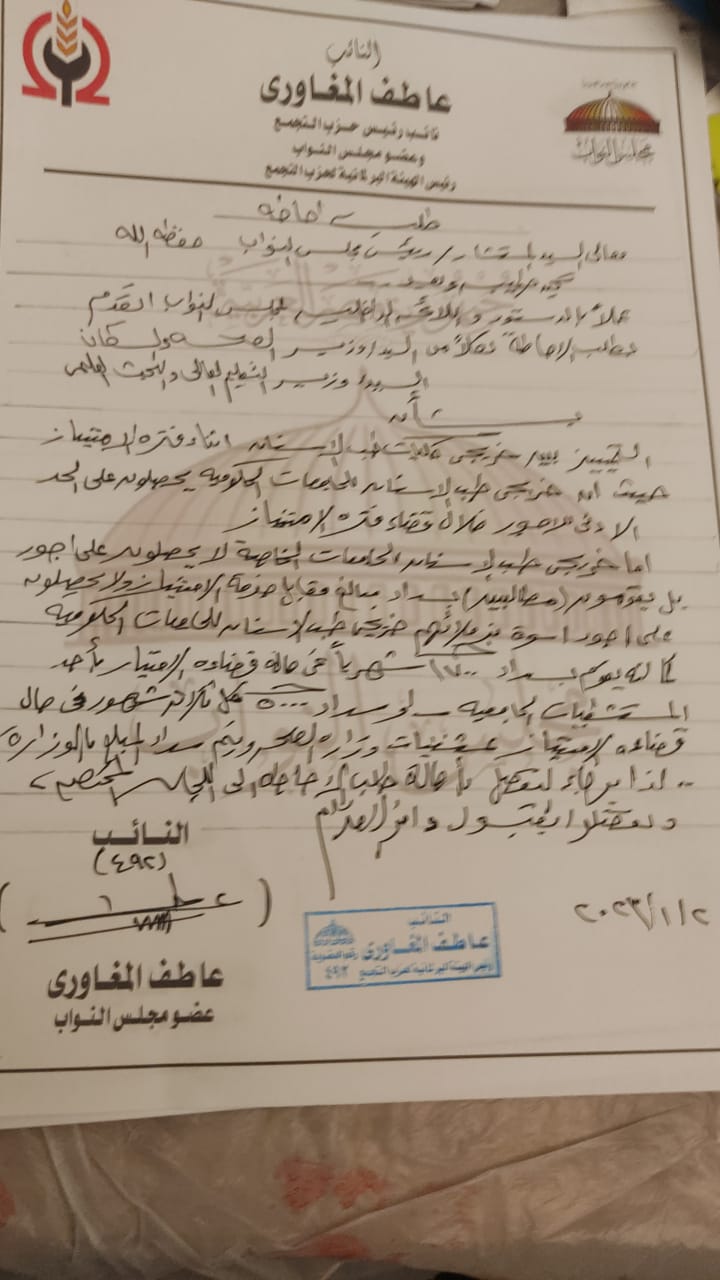 النائب
عاطف المغاورى
نائب رئيس حزب التجمع
وعضو مجلس النواب
رئيس الهيئة البرلمانية لحزب التجمع
مجلس النواب
طلب احاطه
معالى السيد المستشار/ رئيس مجلس النواب حفظه الله
تحيه طيبه وبعد
عملاً بالدستور و اللائحه الداخليه لمجلس النواب اتقدم
بطلب الاحاطة لكلاً من السيد/ وزير الصحه والسكان
السيد/ وزير التعليم العالى والبحث العلمى
بشأن
التمييز بين خريجى كليات طب الاسنان اثناء فتره الامتياز
حيث ان خريجى طب الاسنان للجامعات الحكوميه يحصلون على الحد
الادنى للاجور خلال قضاء فتره الامتياز
اما خريجى طب الاسنان الجامعات الخاصة لا يحصلون على اجور
بل يقومون (مطالبين) بسداد مبالغ مقابل خدمة الامتياز ولا يحصلون
على اجور اسوة بزملائهم خريجى طب الاسنان للجامعات الحكومية
كانه يقوم بسداد ١٧٠٠ شهرياً فى حاله قضاءه الامتياز بأحد
المستشفيات الجامعيه او سداد ٥٠٠٠ كل ثلاث شهور فى حال
قضاءه الامتياز بمستشفيات وزاره الصحه ويتم سداد المبلغ بالوزارة
لذا برجاء التفضل بأحالة طلب الاحاطه الى اللجان المختصه
وتفضلوا بقبول وافر الاحترام
النائب
(٤٩٢)
٢٠٢٣/١/٢
النائب
عاطف المغاورى
رقم العضوية
٤٩٢
رئيس الهيئة البرلمانية لحزب التجمع
عاطف المغاورى
عضو مجلس النواب